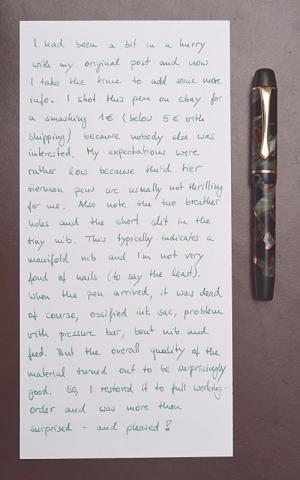 I had been a bit in a hurry
with my original post and now
I take the time to add some more
info. I shot this pen on ebay for
a smashing 1€ (below 5€ with
shipping) because nobody else was
interested. My expectations were
rather low because third tier
German pens are usually not thrilling
for me. Also note the two breather
holes and the short slit in the
tiny nib. This typically indicates a
manifold nib and I'm not very
fond of nails (to say the least).
When the pen arrived, it was dead
of course, ossified ink sac, problem
with pressure bar, bent nib and
feed. But the overall quality of the
material turned out to be surprisingly
good. So, I restored it to full working-
order and was more than
surprised - and pleased!